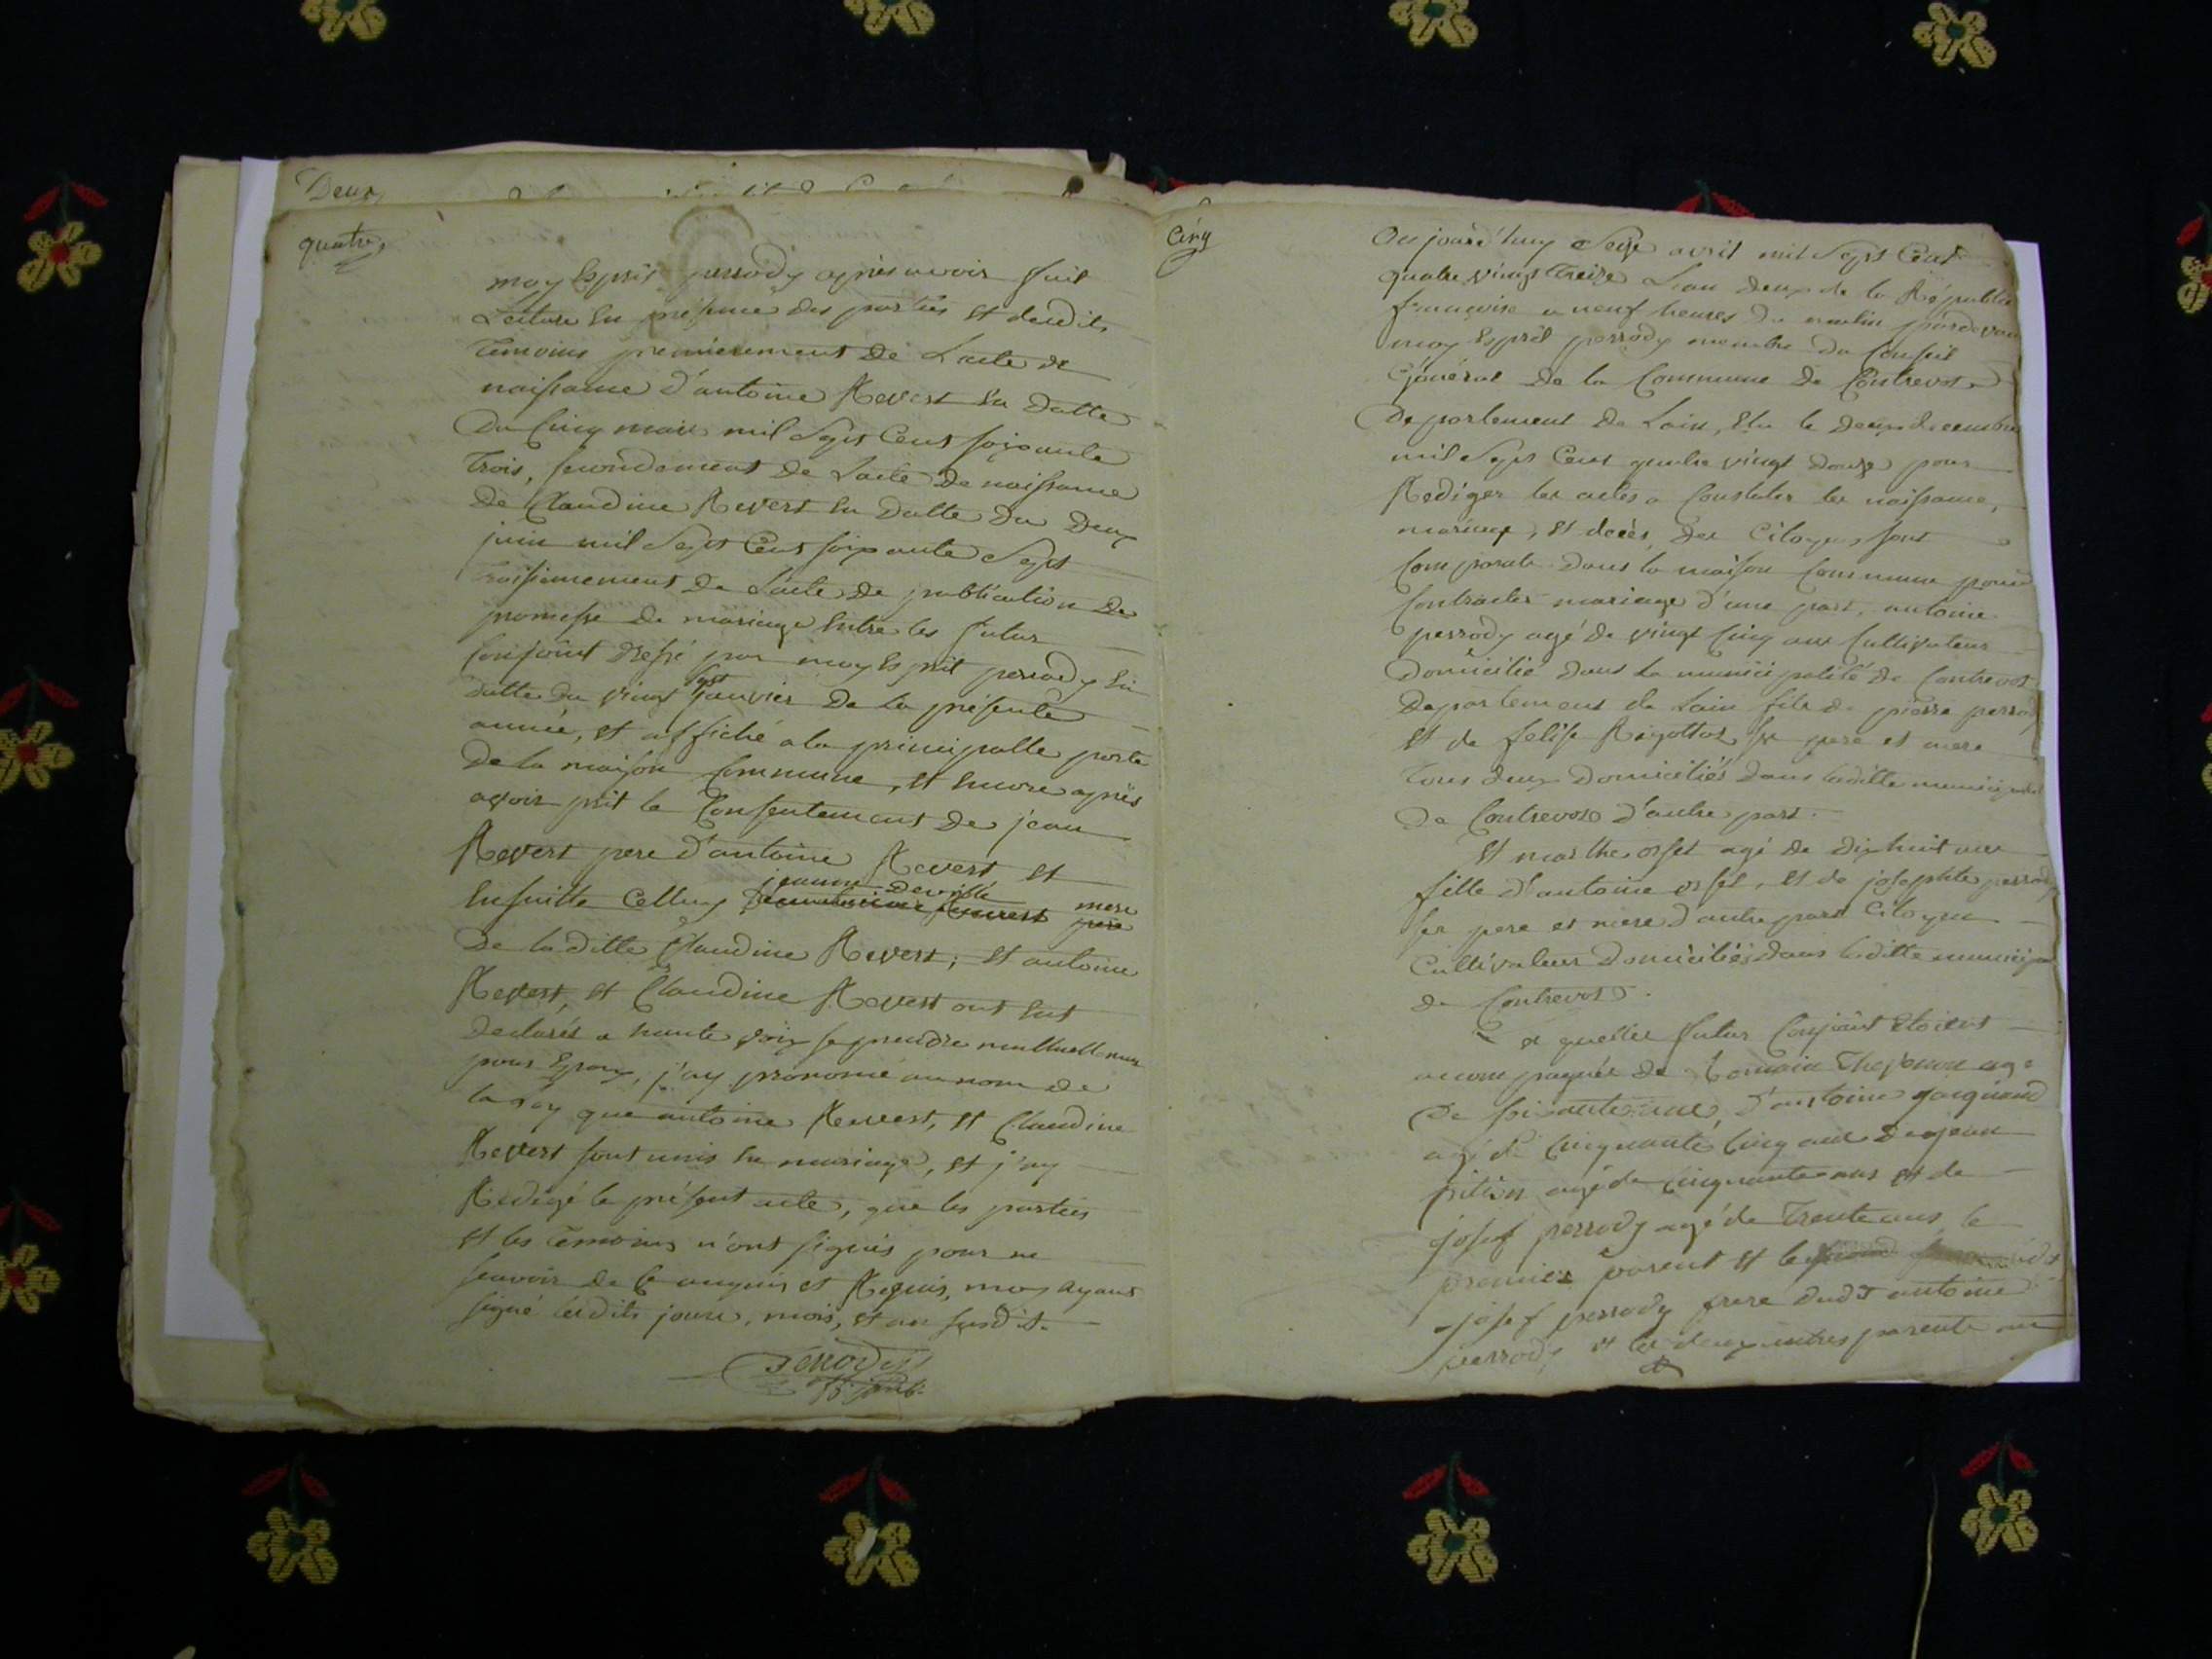 Deux
quatre
moy Esprit perrody apries avoir fait
Lecture En presence des parties Et desdits
Temoins premierement de Lacte de
naissance d'antoine Revert En datte
Du Cinq mars mil Sept Cent soixante
Trois, secondement de Lacte de naissance
De Claudine Revert En datte du deux
juin mil Sept Cent soixante Sept
Troisiemement de Lacte de publication de
promesse de mariage Entre les futur
Conjoint Dressé par moy Esprit perrody En
datte du vingt sept janvier De la présente
année, Et affiché a la principalle porte
De la maison Commune, Et Encore apriès
avoir prit le Consentement de jean
Revert pere d'antoine Revert Et
jeanne
Ensuitte Celluy mere pere
De la ditte Claudine Revert; Et antoine
Revert, Et Claudine Revert ont Ent
declarés a haute voix se prendre mutuellement
pour Epoux, j'ay prononcé au nom de
la Loy que antoine Revert, Et Claudine
Revert sont unis En mariage, Et j'ay
Rédigé le présent acte, que les parties
Et les Temoins n'ont signés pour ne
scavoir de Ce enquis et Requis, moy ayant
signé lesdits jours, mois, Et an susdit.
Perrody
Cinq
Aujourd'huy Seize avril mil Sept Cent
quatre vingt Treize Lan deux de la Républi
françoise a neuf heures du matin pardevan
moy Esprit perrody membre du Conseil
Général De la Commune de Contrevoz
Departement de Lain, Elu le deux decembre
mil Sept Cent quatre vingt douze pour
Rediger les actes a Constater les naissance,
mariage, Et décés, des Citoyens sont
Comparut Dans la maison Commune pour
Contracter mariage d'une part, antoine
perrody agé de vingt Cinq ans Cultivateur
Domicilié dans la municipalité de Contrevoz
Departement de Lain fils de pierre perrody
Et de felise Rigottot Ses pere et mere
Tous deux Domiciliés Dans laditte municipal
De Contrevoz d'autre part.
Et marthe orset agé de dix huit ans
fille d'antoine orset, Et de josephte perrody
ses pere et mere d'autre part Citoyen
Cultivateur Domiciliés dans laditte municipa
de Contrevoz.
Lesquelles futur Conjoint Etoient
accompagnée de Romain Thevenon age
De soixante ans, d'antoine goiguand
agé de Cinquante Cinq ans de jean
pition agé de Cinquante ans Et de
josef perrody agé de Trente ans le
premier parent Et le
josef perrody frere dudit antoine
perrody Et les deux autres parents